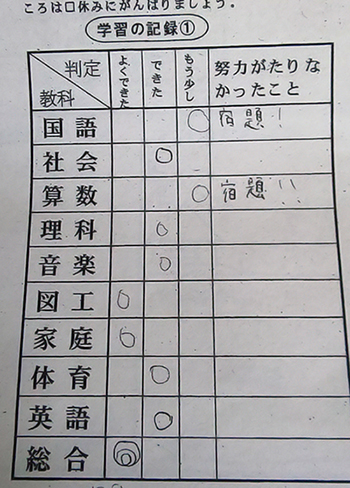 ころは口休みにがんばりましょう。
学習の記録①
判定
教科
よくできた
できた
もう少し
努力がたりな
かったこと
国語 ○ 宿題!
社会 ○
算数 ○ 宿題!!
理科 ○
音楽 ○
図工 ○
家庭 ○
体育 ○
英語 ○
総合 ◎